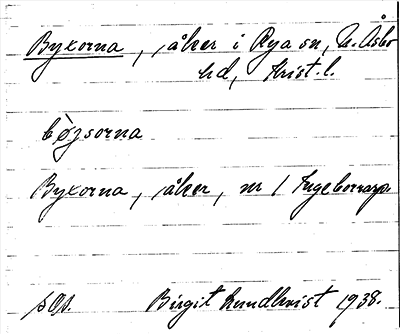 Byxorna, åker i Rya sn, N. Åsbo
hd, Krist. l.
bøgsorna
Byxorna, åker, nr 1 Ingeborrarp
Birgit Lundkvist 1938.